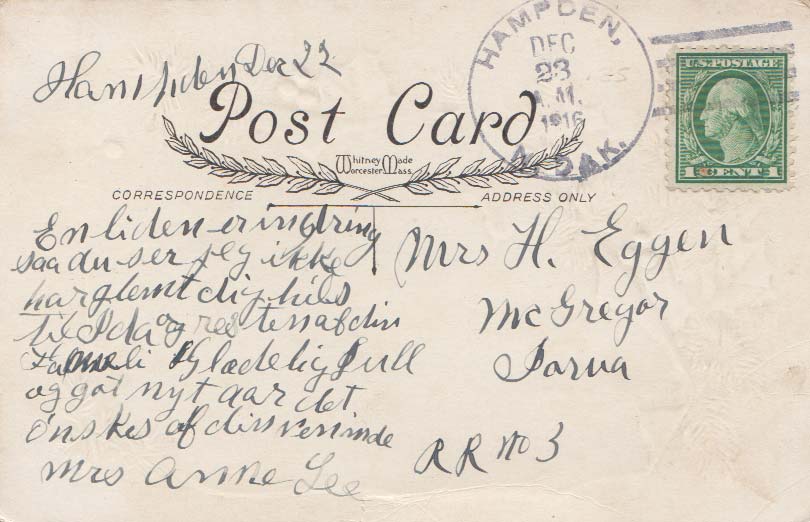 Hampden Dec 22
HAMPDEN,
DEC
23
A.M.
1916
N. DAK.
U.S. POSTAGE
1 CENT 1
Post Card
Whitney Made
Worcester, Mass.
CORRESPONDENCE
ADDRESS ONLY
En liden erindring
saa du ser jeg ikke
har glemt dig hils
til Ida og resten af din
Fameli Glædelig Jull
og got nyt aar det
önskes af din veninde
Mrs Anne Lee
Mrs H. Eggen
McGregor
Iorva
RR No 3